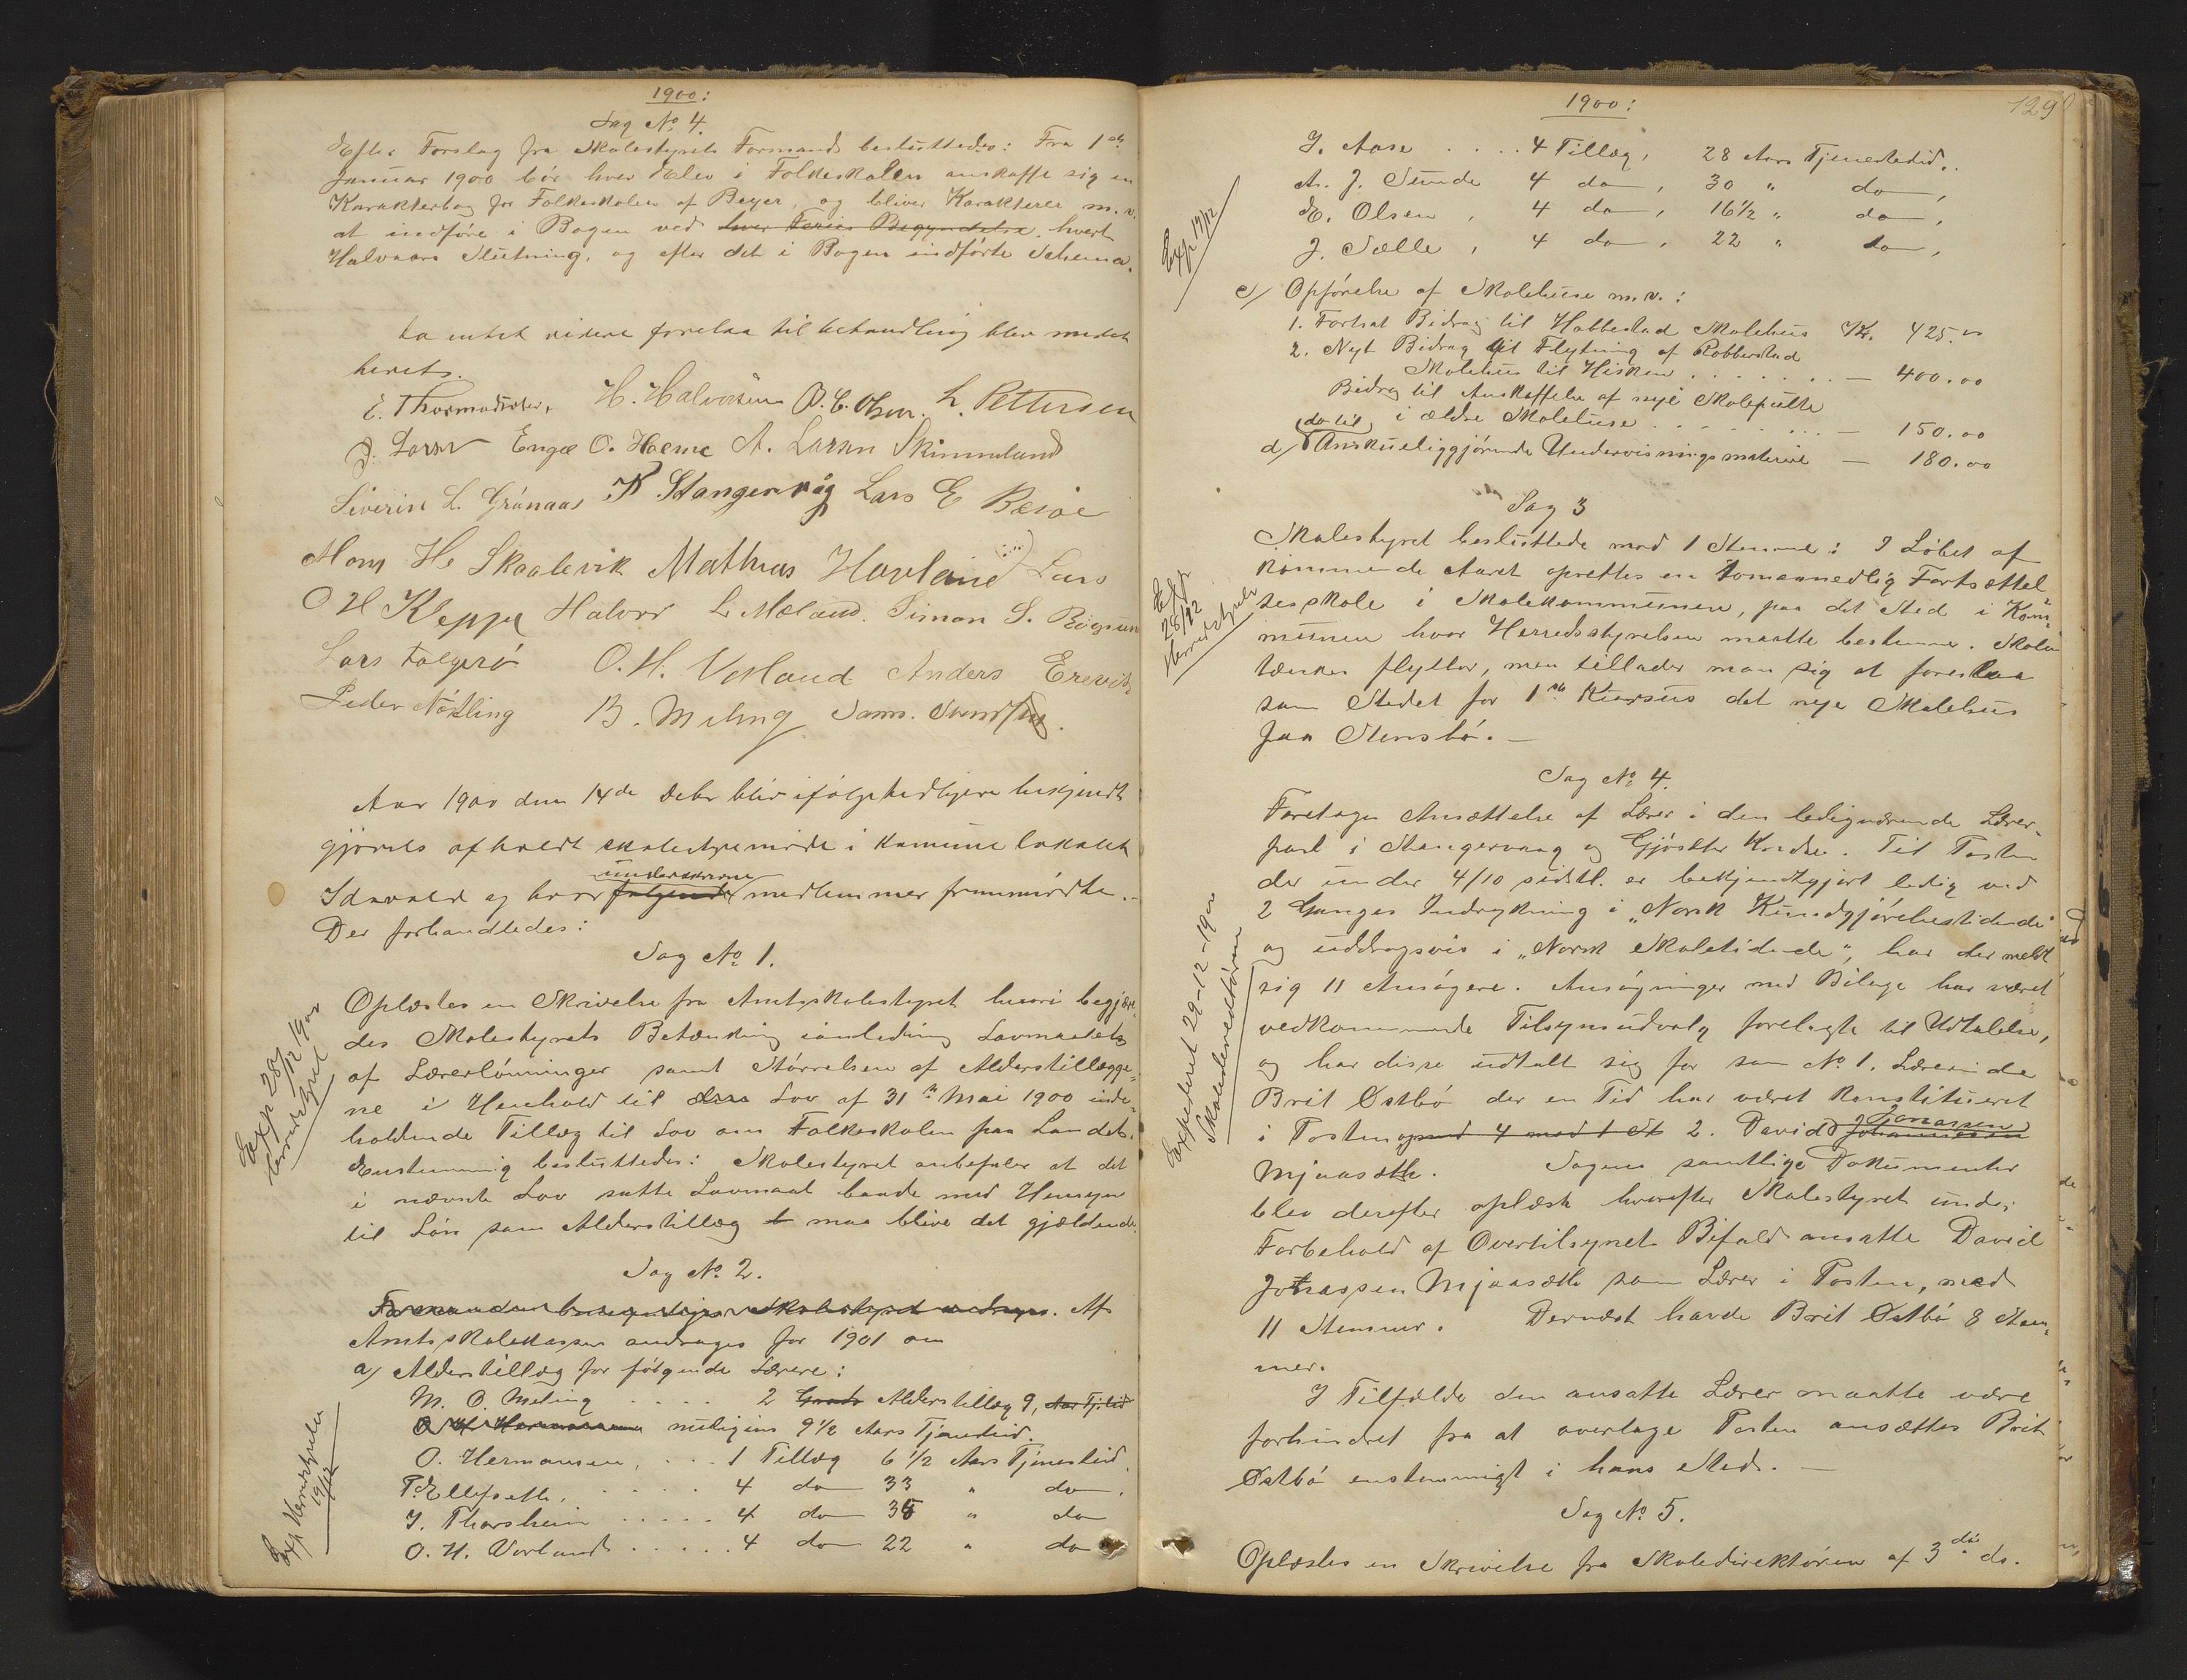 1900:
Sag No. 4.
Efter Forslag fra Skolestyrets Formand besluttedes: Fra 1ste
Januar 1900 bör hver Elev i Folkeskolen anskaffe sig en
Karakterbog for Folkeskolen af Beyer, og bliver Karakterer m.v.
at indföre i Bogen ved hver Feries Begyndelse. hvert
Halvaars Slutning, og efter det i Bogen indförte Schema.
Da intet videre forelaa til behandling blev mödet
hevet.
E. Thormodsæter, H. Halvorsen B. C. Olsen. L. Pettersen
J. Larsen Engæ O. Hoeme A. Larsen Skimmeland
Siverin L. Grönaas K Stangervåg Lars E Besöe
Mons Hs Skaalevik Mathias Hovland (:..) Lars
O H Kleppe Halvor L Mæland. Simon S. Rögsund
Lars Folgerö O. H. Vorland Anders Erevik
Peder Nötling B. Meling Sam. Svendsen.
Aar 1900 den 14de Debr blev ifölge hedligere bekjendt
gjörels afholdt skolestyremöde i Komune lokalet
underskrevne
Idavold og hvor følgende medlemmer fremmödte.
Der forhandledes:
Sag No. 1.
Oplæstes en Skrivelse fra Amtsskolestyret hvori begjære-
des Skolestyrets Betænkning ianledning Lovmaalets
af Lærerlönninger samt Störrelsen af Alderstillægge-
ne i Henhold til Lov af 31te Mai 1900 inde-
holdende Tillæg til Lov om Folkeskolen paa Landet.
Enstemmig besluttedes: Skolestyret anbefaler at det
i nævnte Lov satte Lovmaal baade med Hensyn
til Lön som Alderstillæg maa blive det gjældende.
Exp 28/12 1900
Herredstyret
Sag No. 2.
Skolestyret andrages. Af
Amtsskolekassen andrages for 1901 om
a/ Alderstillæg for fölgende Lærere:
M. O. Meling . . . . 2 Grads Alderstillæg 9, Aar Tj.tid
Hermansen muligens 9 1/2 Aars Tjenestetid.
O. Hermansen, . . . 1 Tillæg 6 1/2 Aars Tjenestetid.
P. Ellefsæth, . . . . . 4 do 33 " do.
J. Thorsheim . . . . . 4 do 36 " do
O. H. Vorland . . . . . 4 do 22 " do
Exp Herredstyrelsen
19/12
1900: 129
J. Aase . . . . 4 Tillæg, 28 Aars Tjenestetid.
A. J. Sunde 4 do, 30 " do,
E. Olsen, 4 do, 16 1/2 " do,
J. Sælle, 4 do, 22 " do,
Exp 19/12
c/ Opförelse af Skolehuse m.v.:
1. Fortsat Bidrag til Hobbestad Skolehus Kr. 425.00
2. Nyt Bidrag til Flytning af Robberstad
Skolehus til Hisken . . . . . . . — 400.00
Bidrag til Anskaffelse af nye Skolepulte
i ældre Skolehuse . . . . . . . . — 150.00
d/ (do til) Anskueliggjörende Undervisningsmateriel — 180.00
Sag 3
Skolestyret besluttede mod 1 Stemme: I Löbet af
kommende Aaret oprettes en tomaanedlig Fortsættel-
sesskole i Skolekommunen, paa det Sted i Kom-
munen hvor Herredsstyrelsen maatte bestemme. Skolen
tænkes flyttes, men tillader man sig at foreslaa
som Stedet for 1ste Kursus det nye Skolehus
paa Stensbö. —
Exp
28/12
Herredstyrelse
Sag No. 4.
Foretoges Ansættelse af Lærer i den ledigværende Lærer-
post i Stangervaag og Gjösæter Kredse. Til Posten
der under 4/10 sidstl. er bekjendtgjort ledig ved
2 Ganges Indrykning i „Norsk Kundgjörelsestidende"
og uddragsvis i „Norsk Skoletidende", har der meldt
sig 11 Ansögere. Ansögninger med Bilage har været
vedkommende Tilsynsudvalg forelagte til Udtalelse,
og har disse udtalt sig for som No. 1. Lærerinde
Brit Østbö der en Tid har været Konstitueret
i Posten og med 4 mod 1 St 2. David Johannessen Jonassen
Mjaasæth. Sagens samtlige Dokumenter
blev derefter oplæst hvorefter Skolestyret under
Forbehold af Overtilsynets Bifald ansatte David
Jonassen Mjaasæth som Lærer i Posten, med
11 Stemmer. Dernæst havde Brit Østbö 8 Stem-
mer.
I Tilfælde den ansatte Lærer maatte være
forhindret fra at overtage Posten ansættes Brit
Østbö enstemmigt i hans Sted. —
Expederet 29-12-1900
Skoledirektören
Sag No. 5.
Oplæstes en Skrivelse fra Skoledirektören af 3die ds.